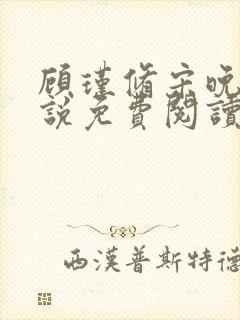 顾瑾脩宋晚
說免費閱讀
西漢普斯特德